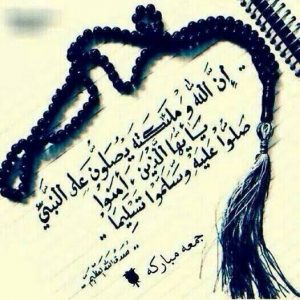 إِنَّ اللّٰهَ وَمَلَٰٓئِكَتَهُ يُصَلُّونَ عَلَى النَّبِيِّ
يَا أَيُّهَا الَّذِينَ ءَامَنُوا
صَلُّوا عَلَيْهِ وَسَلِّمُوا تَسْلِيمًا
صدق الله العظيم
جمعه مباركه